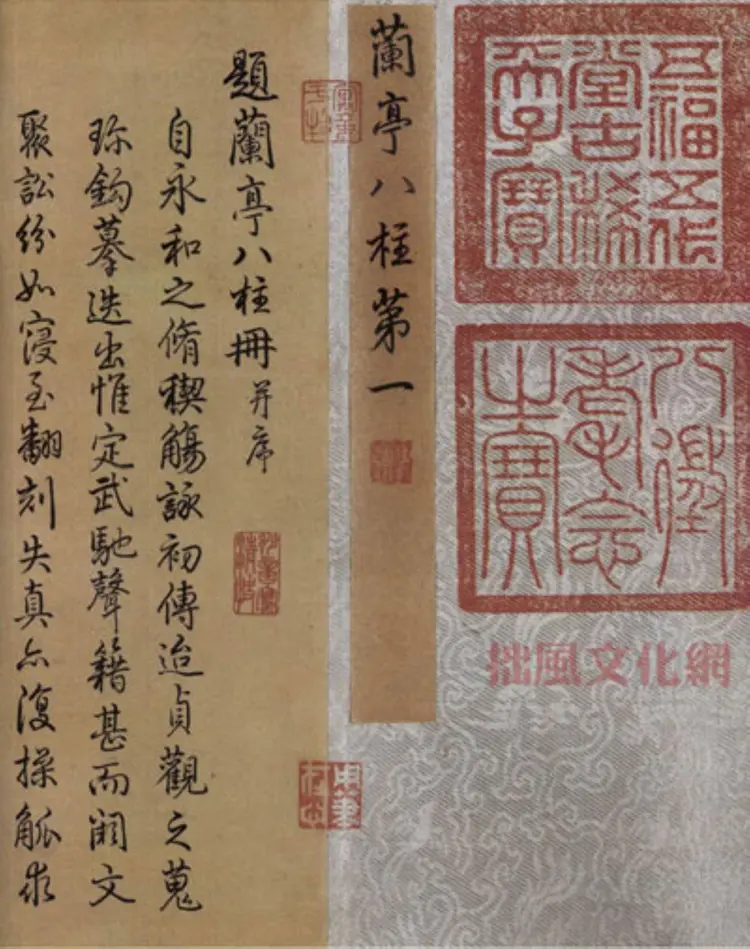 五福五代
堂古稀
天子寶
八徵
耄念
之寶
拙風文化網
蘭亭八柱苐一
題蘭亭八柱冊 并序
自永和之脩稧觴詠初傳迨貞觀之蒐
珎鈎摹迭出惟定武馳聲籍甚而闕文
聚訟紛如寖至翻刻失真亦復操觚求